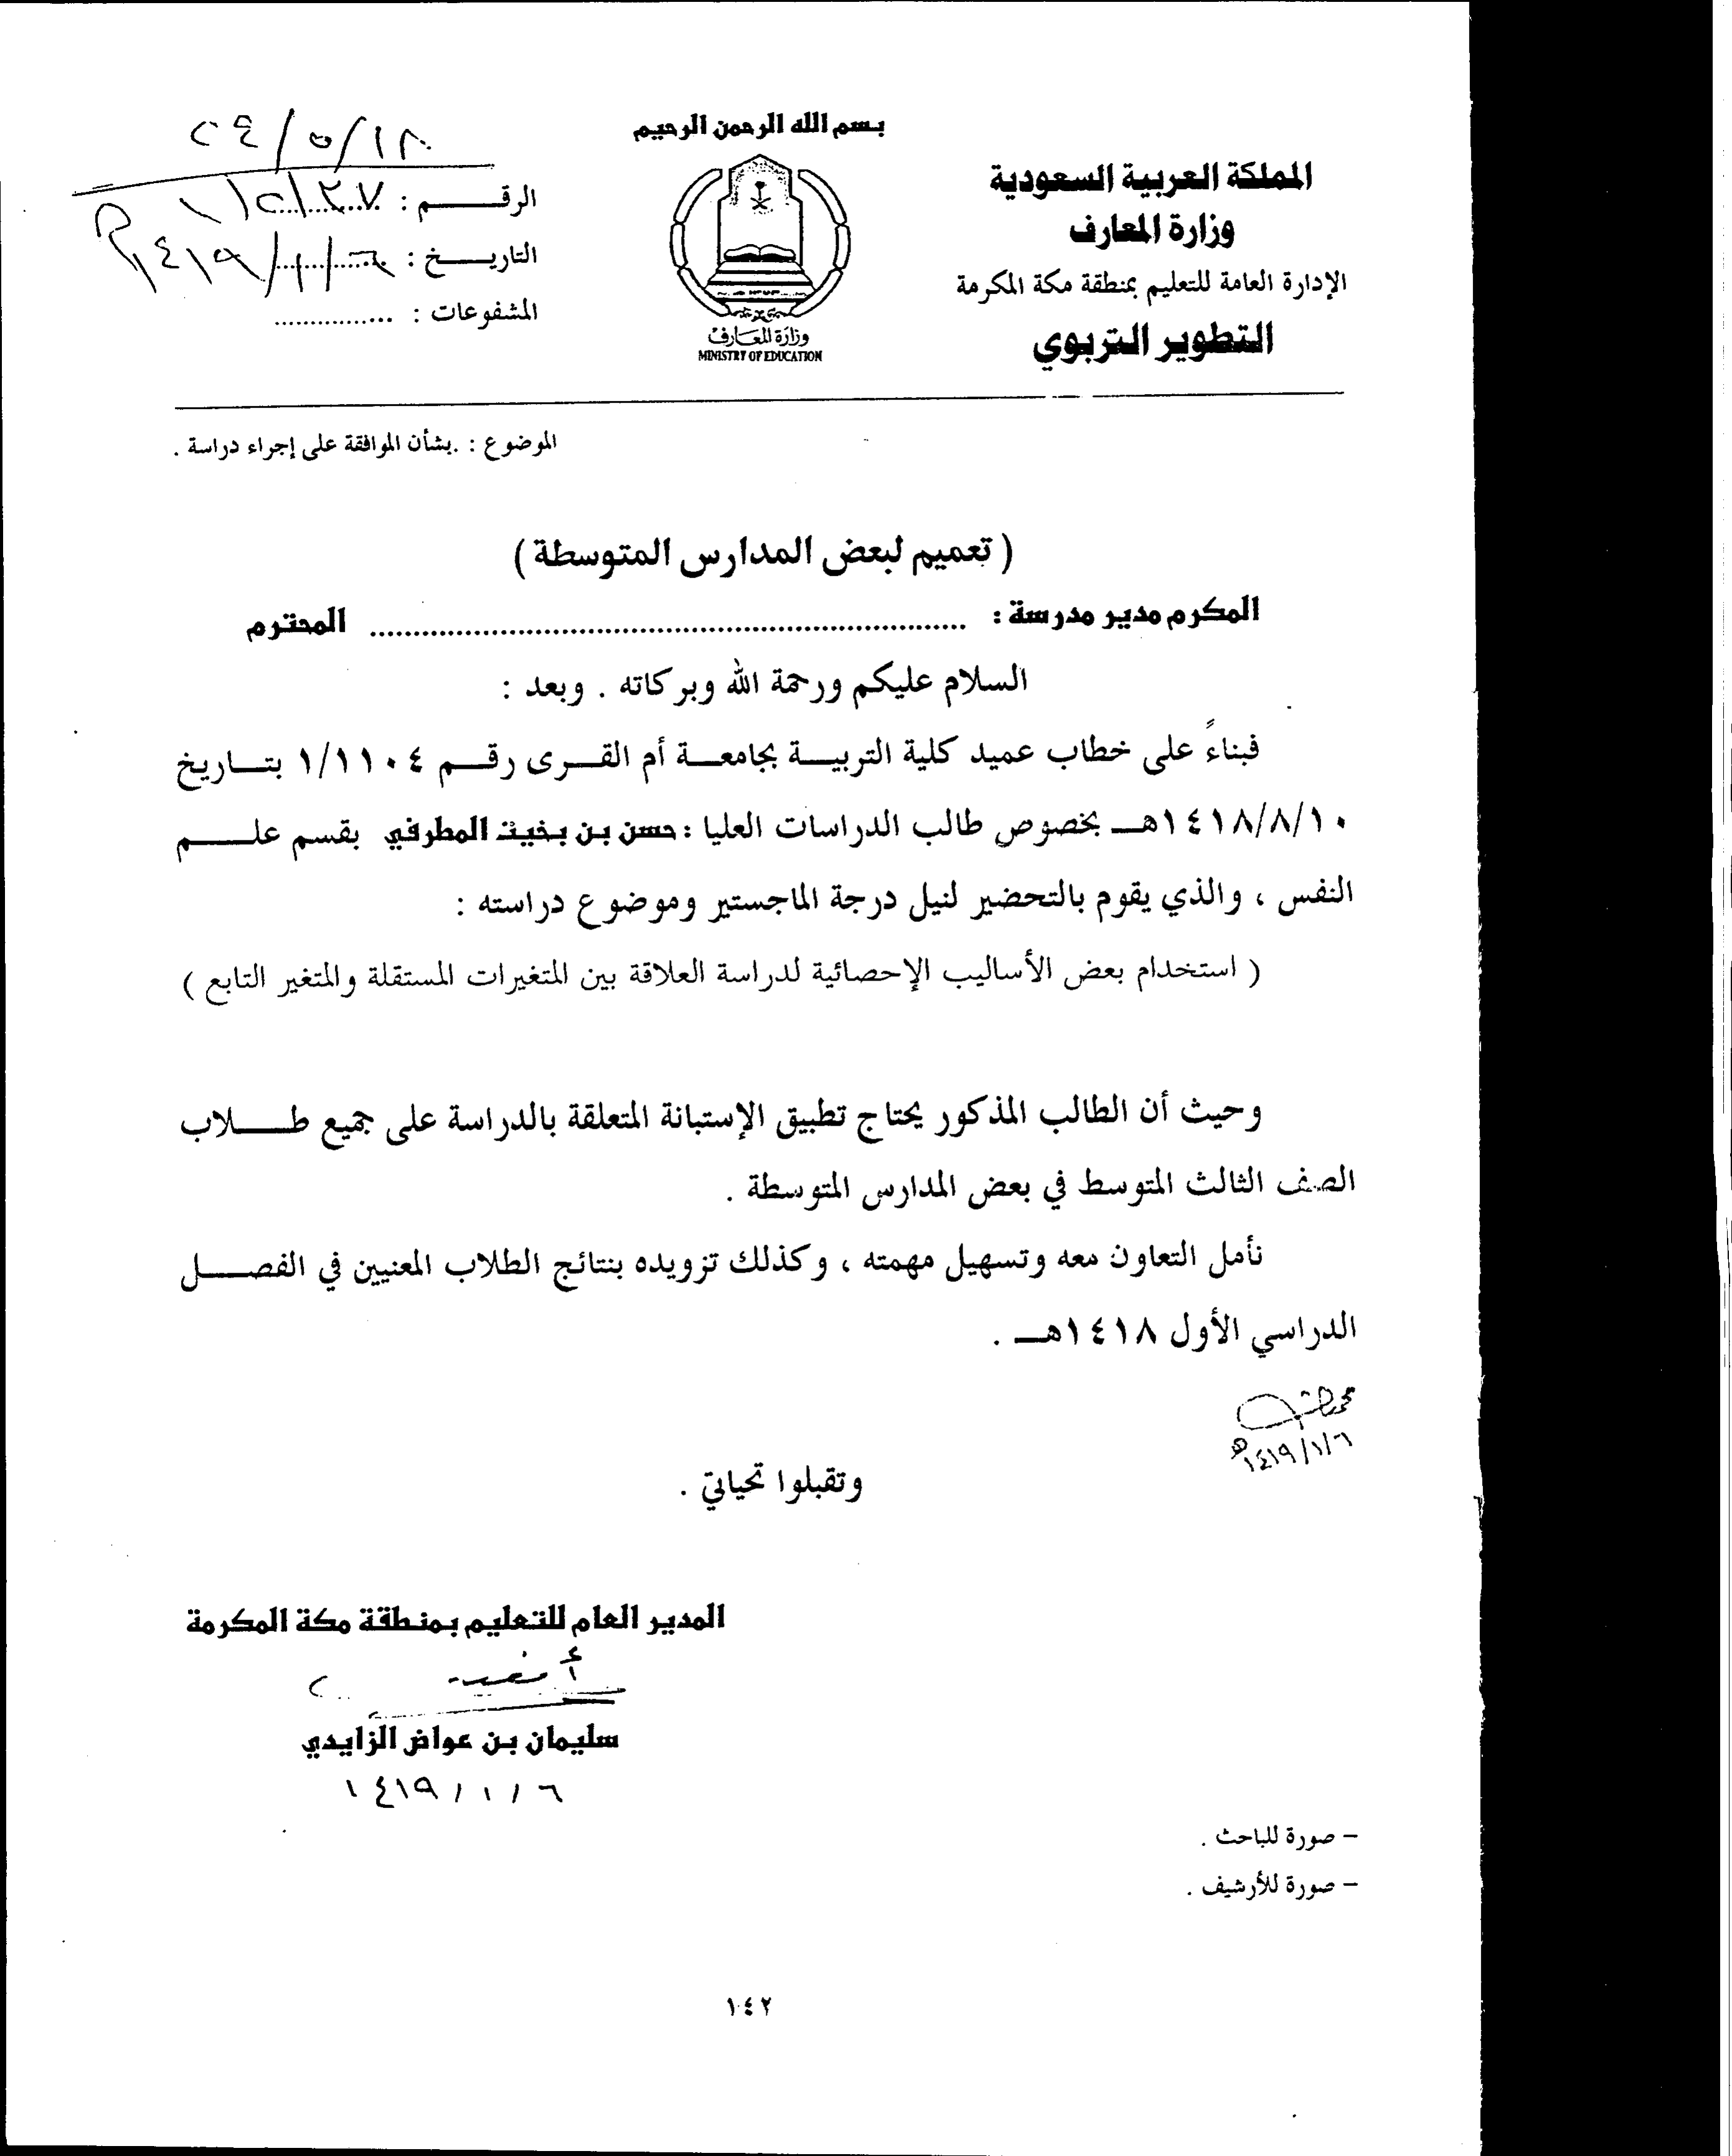 بسم الله الرحمن الرحيم
المملكة العربية السعودية
وزارة المعارف
الإدارة العامة للتعليم بمنطقة مكة المكرمة
التطوير التربوي
وزارة المعارف
MINISTRY OF EDUCATION
الرقـــــم :
التاريـــخ : ١٤١٩/١/٦
المشفوعات : ...............
الموضوع : .بشأن الموافقة على إجراء دراسة .
( تعميم لبعض المدارس المتوسطة )
المكرم مدير مدرسة : ........................................ المحترم
السلام عليكم ورحمة الله وبركاته . وبعد :
فبناءً على خطاب عميد كلية التربيـــة بجامعـــة أم القـــرى رقـــم ١/١١٠٤ بتـــاريخ
١٤١٨/٨/١٠هــ بخصوص طالب الدراسات العليا : حسن بن بخيت المطرفي بقسم علــــم
النفس ، والذي يقوم بالتحضير لنيل درجة الماجستير وموضوع دراسته :
( استخدام بعض الأساليب الإحصائية لدراسة العلاقة بين المتغيرات المستقلة والمتغير التابع )
وحيث أن الطالب المذكور يحتاج تطبيق الإستبانة المتعلقة بالدراسة على جميع طــــلاب
الصف الثالث المتوسط في بعض المدارس المتوسطة .
نأمل التعاون معه وتسهيل مهمته ، وكذلك تزويده بنتائج الطلاب المعنيين في الفصــــل
الدراسي الأول ١٤١٨هــ .
١٤١٩/١/٦هـ
وتقبلوا تحياتي .
المدير العام للتعليم بمنطقة مكة المكرمة
سليمان بن عواض الزايدي
١٤١٩/١/٦
– صورة للباحث .
– صورة للأرشيف .
١٤٢